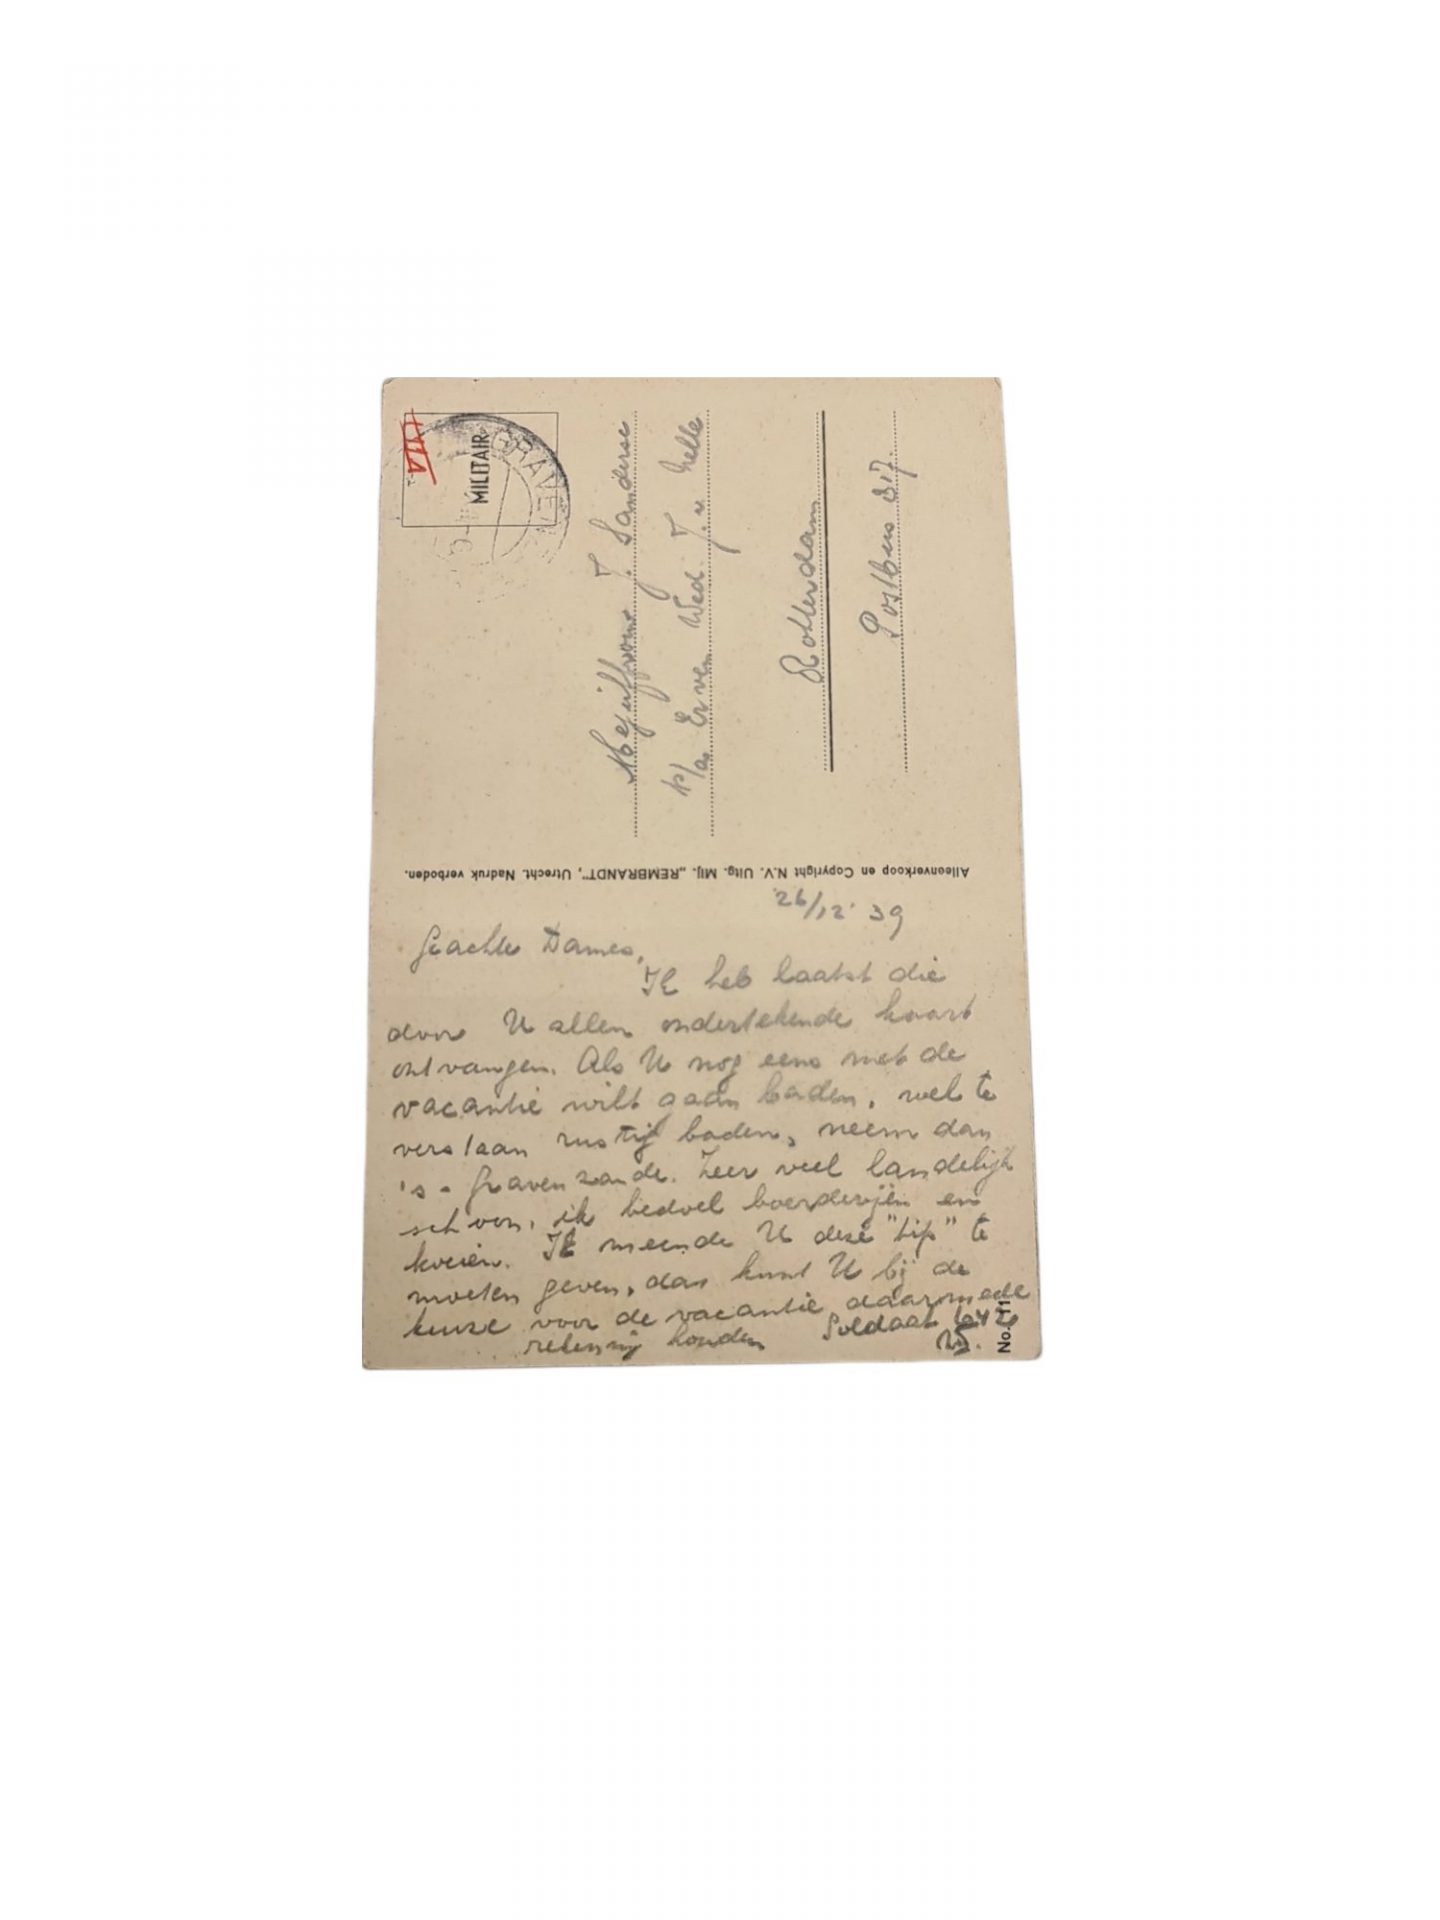 MILITAIR.
GRAVE
Mejuffrouw J. Sanderse
p/a Erven Wed. J. v. Nelle
Rotterdam
Postbus 817.
Alleenverkoop en Copyright N.V. Uitg. Mij. „REMBRANDT”, Utrecht. Nadruk verboden.
26/12 39
Geachte Dames,
Ik heb laatst die
door U allen ondertekende kaart
ontvangen. Als U nog eens met de
vacantie wilt gaan baden, wel te
verstaan rustig baden, neem dan
's-Gravenzande. Zeer veel landelijk
schoon, ik bedoel boerderijen en
koeien. Ik meende U deze "tip" te
moeten geven, dan kunt U bij de
keuze voor de vacantie daarmede
rekening houden Soldaat
No. 11